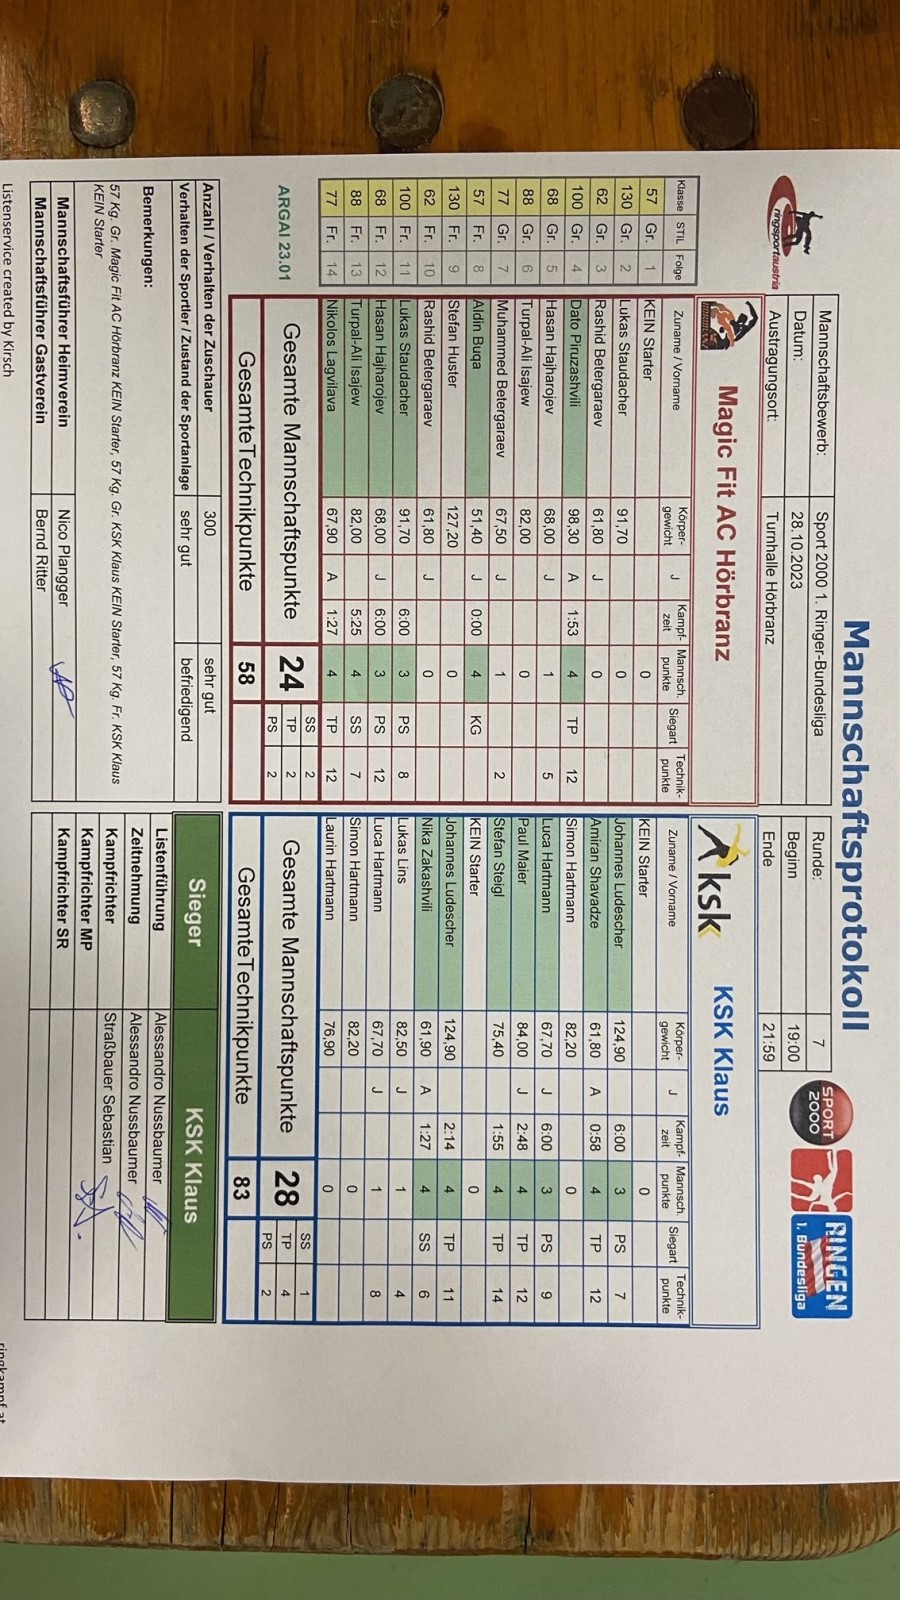 Mannschaftsprotokoll
ringsportaustria
Mannschaftsbewerb: Sport 2000 1. Ringer-Bundesliga Runde: 7
Datum: 28.10.2023 Beginn 19:00
Austragungsort: Turnhalle Hörbranz Ende 21:59
SPORT 2000
RINGEN
1. Bundesliga
Magic Fit AC Hörbranz ksk KSK Klaus
Klasse STIL Folge Zuname / Vorname Körper-gewicht J Kampf-zeit Mannsch. punkte Siegart Technik-punkte Zuname / Vorname Körper-gewicht J Kampf-zeit Mannsch. punkte Siegart Technik-punkte
57 Gr. 1 KEIN Starter 0 KEIN Starter 0
130 Gr. 2 Lukas Staudacher 91,70 0 Johannes Ludescher 124,90 6:00 3 PS 7
62 Gr. 3 Rashid Betergaraev 61,80 J 0 Amiran Shavadze 61,80 A 0:58 4 TP 12
100 Gr. 4 Dato Piruzashvili 98,30 A 1:53 4 TP 12 Simon Hartmann 82,20 0
68 Gr. 5 Hasan Hajharojev 68,00 J 1 5 Luca Hartmann 67,70 J 6:00 3 PS 9
88 Gr. 6 Turpal-Ali Isajew 82,00 0 Paul Maier 84,00 J 2:48 4 TP 12
77 Gr. 7 Muhammed Betergaraev 67,50 J 1 2 Stefan Steigl 75,40 1:55 4 TP 14
57 Fr. 8 Aldin Buqa 51,40 J 0:00 4 KG KEIN Starter 0
130 Fr. 9 Stefan Huster 127,20 0 Johannes Ludescher 124,90 2:14 4 TP 11
62 Fr. 10 Rashid Betergaraev 61,80 J 0 Nika Zakashvili 61,90 A 1:27 4 SS 6
100 Fr. 11 Lukas Staudacher 91,70 6:00 3 PS 8 Lukas Lins 82,50 J 1 4
68 Fr. 12 Hasan Hajharojev 68,00 J 6:00 3 PS 12 Luca Hartmann 67,70 J 1 8
88 Fr. 13 Turpal-Ali Isajew 82,00 5:25 4 SS 7 Simon Hartmann 82,20 0
77 Fr. 14 Nikolos Lagvilava 67,90 A 1:27 4 TP 12 Laurin Hartmann 76,90 0
ARGAI 23.01 Gesamte Mannschaftspunkte 24 SS 2 Gesamte Mannschaftspunkte 28 SS 1
TP 2 TP 4
GesamteTechnikpunkte 58 PS 2 GesamteTechnikpunkte 83 PS 2
Anzahl / Verhalten der Zuschauer 300 sehr gut Sieger KSK Klaus
Verhalten der Sportler / Zustand der Sportanlage sehr gut befriedigend
Bemerkungen: Listenführung Alessandro Nussbaumer
57 Kg. Gr. Magic Fit AC Hörbranz KEIN Starter, 57 Kg. Gr. KSK Klaus KEIN Starter, 57 Kg. Fr. KSK Klaus Zeitnehmung Alessandro Nussbaumer
KEIN Starter Kampfrichter Straßbauer Sebastian
Kampfrichter MP
Mannschaftsführer Heimverein Nico Plangger Kampfrichter SR
Mannschaftsführer Gastverein Bernd Ritter
Listenservice created by Kirsch ringkampf.at